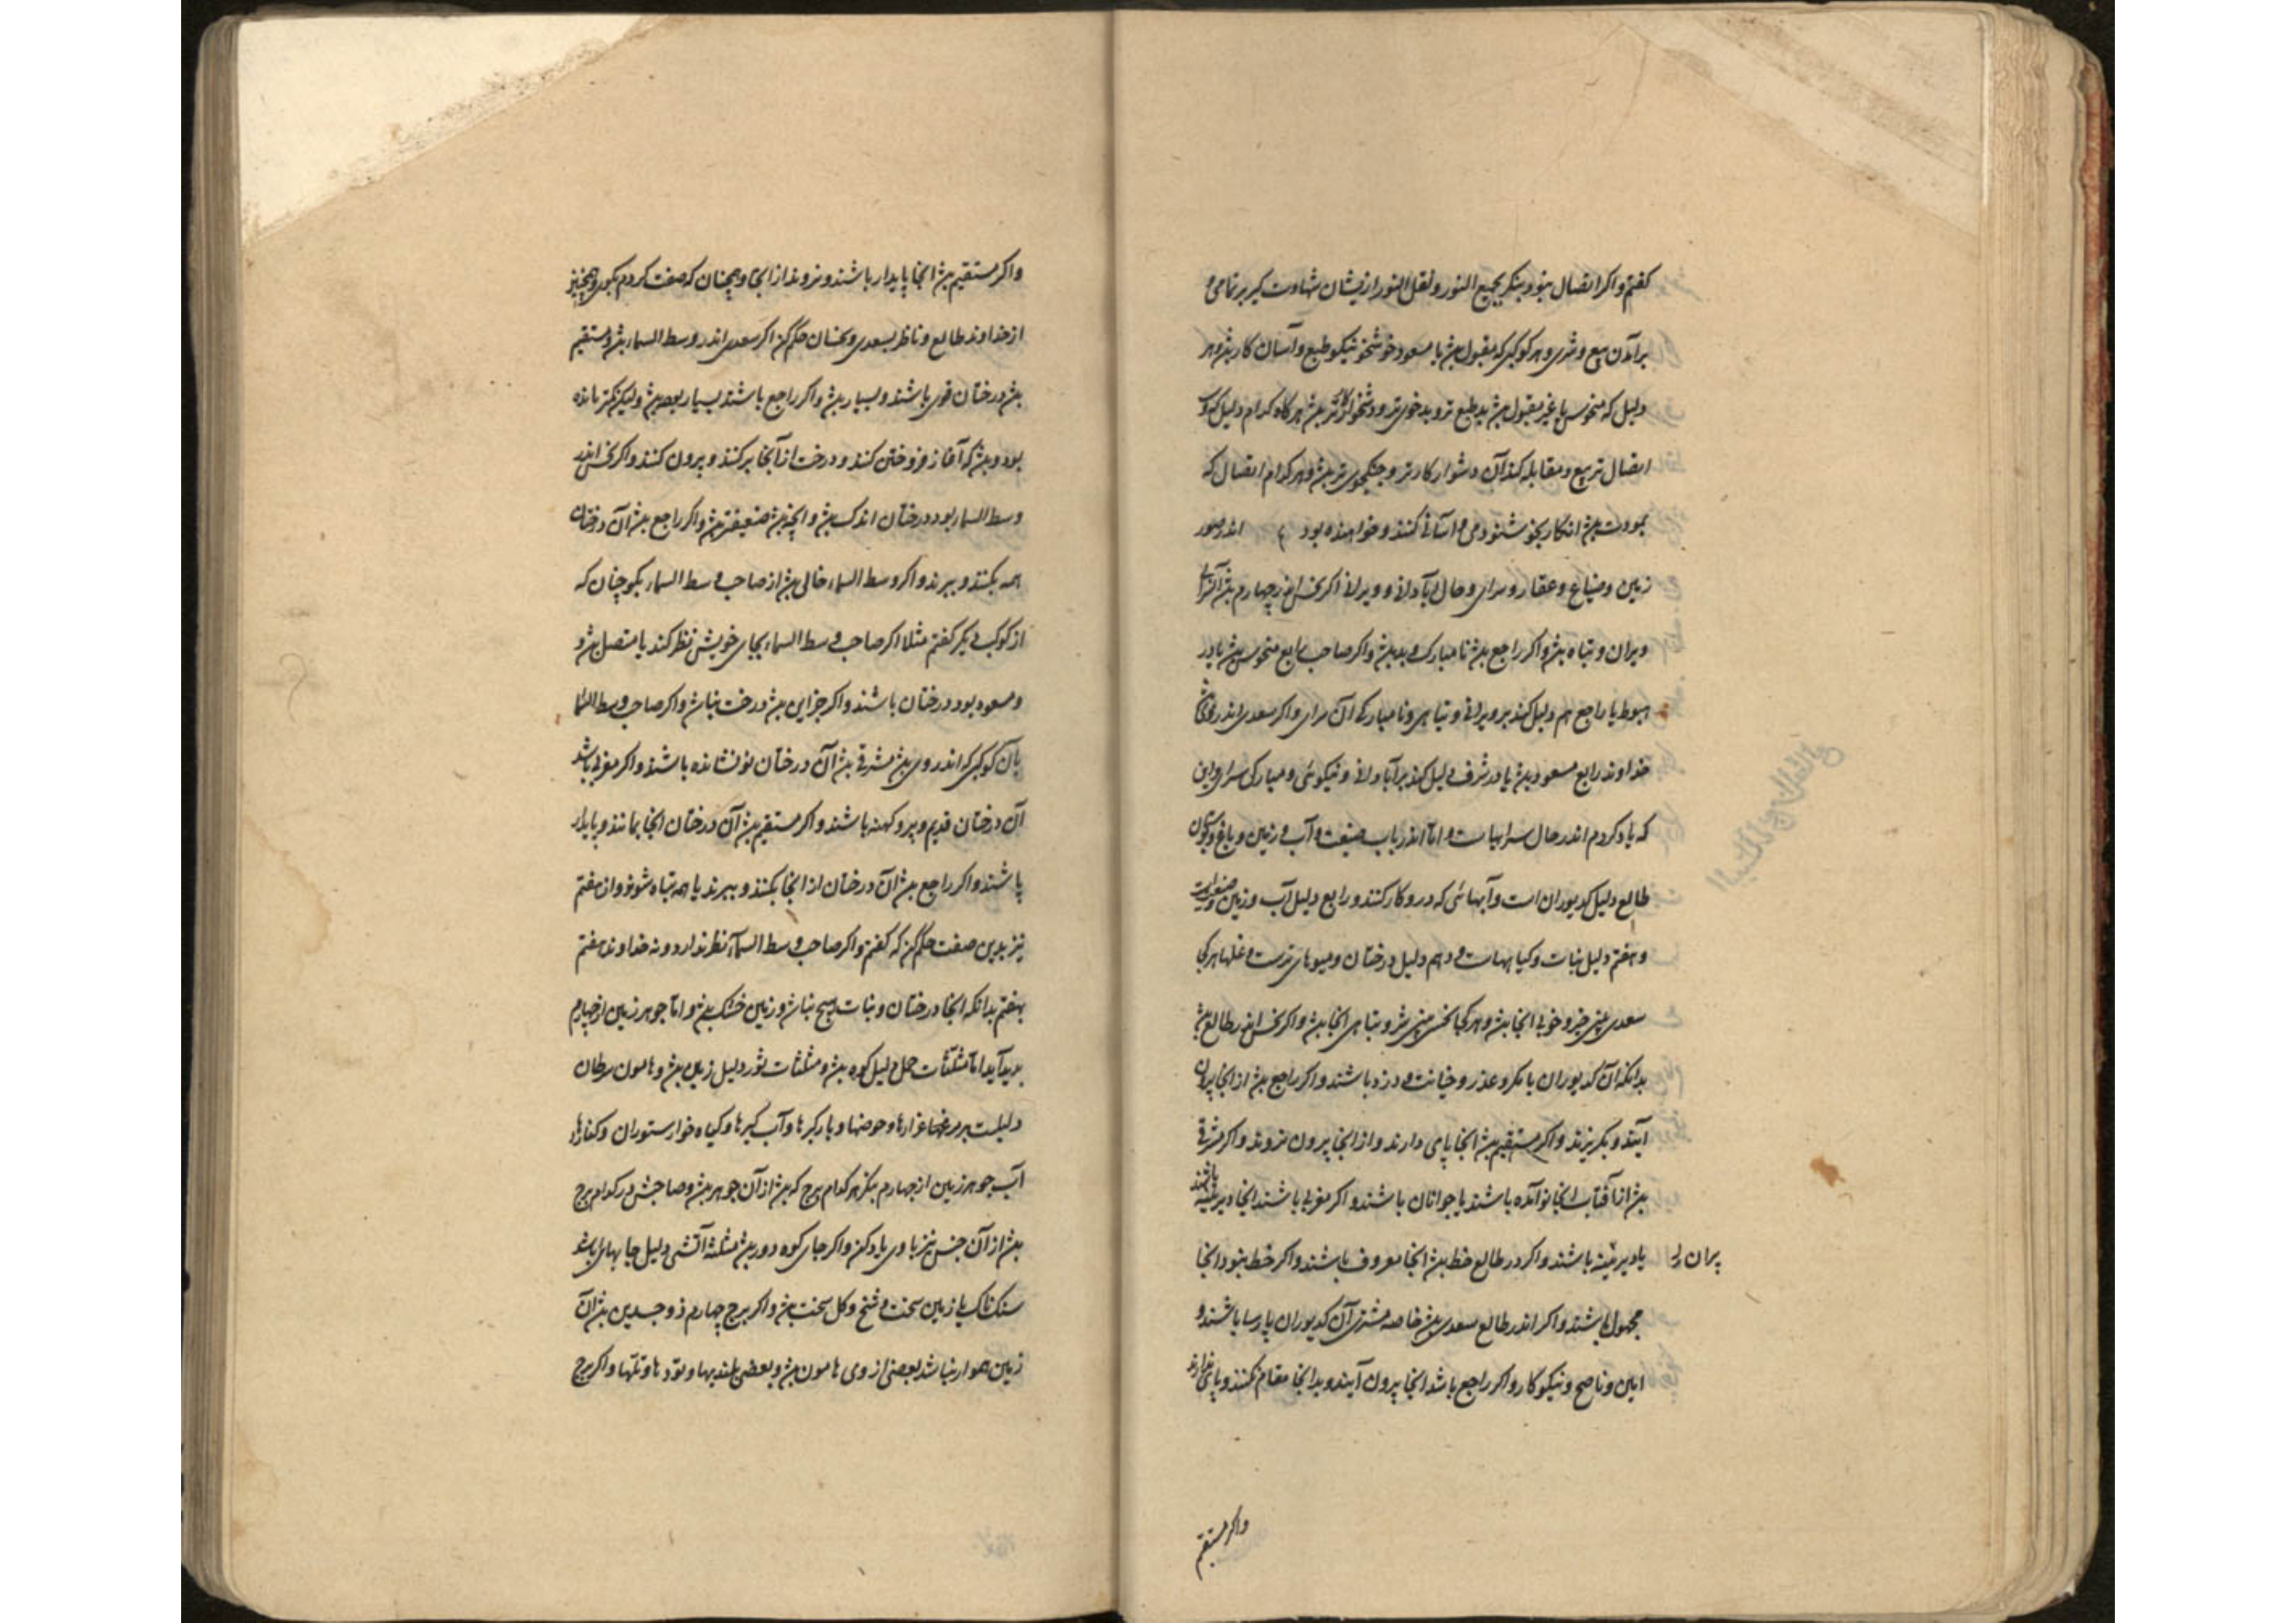 کفتم واکر اتصال نبود بنکر بجمع النور ونقل النور ازیشان شهادت کیر بر تمامی و
برآمدن بیع وشری وهر کوکبی که مقبول بود یا مسعود خوشخو ونیکو طبع وآسان کار بود وهر
دلیل که منحوس یا غیر مقبول بود بد طبع تر و بد خوی تر بود هر کاه کدام دلیل که
اتصال تربیع ومقابله کند آن دشوار کارتر وجنکجوی تر بود وهر کدام اتصال که
بمودت بود انکار بخوشنودی و آسانی کنند وخواهنده بود اندر صور
زمین وضیاع وعقار وسرای وحال آبادانی وویرانی اکر نحس اندر چهارم بود آن سرای
ویران وتباه بود واکر راجع بود نامبارک وبد بود واکر صاحب رابع منحوس بود یا در
هبوط یا راجع هم دلیل کند بر ویرانی وتباهی ونامبارکی آن سرای واکر سعدی اندر وی
خداوند رابع مسعود بود یا در شرف دلیل کند بر آبادانی ونیکوئی ومبارکی سرای واین
که یاد کردم اندر حال سرایهاست واما اندر باب ضیعت وآب وزمین وباغ وبستان
طالع دلیل کدیوران است وآنهائی که درو کار کنند ورابع دلیل آب وزمین
وهفتم دلیل نبات وکیاههاست ودهم دلیل درختان ومیوهای ترست وغلها هر کجا
سعدی بینی خیر وخوبی انجا بود وهر کجا نحس بینی شر وتباهی انجا بود واکر نحس اندر طالع بود
بدانکه آن کدیوران با مکر وغدر وخیانت ودزد باشند واکر راجع بود از انجا بیرون
آیند وبکریزند واکر مستقیم بود انجا پای دارند واز انجا بیرون نروند واکر مشرقی
بود از آفتاب انجا نو آمده باشند یا جوانان باشند واکر مغربی باشند انجا دیرینه باشند
یا دیرینه باشند واکر در طالع خط بود انجا معروف باشند واکر خط نبود انجا
پیران
مجهول باشند واکر اندر طالع سعدی بود خاصه مشتری آن کدیوران پارسا باشند و
امین وناصح ونیکو کار واکر راجع باشد انجا بیرون آیند وبدانجا مقام نکنند وپای ندارند
واکر مستقیم
واکر مستقیم بود انجا پایدار باشند ونروند از انجا وهمچنان که صفت کردم بکوی وهمچنین
از خداوند طالع وناظر بسعدی ونحسان حکم کن اکر سعدی اندر وسط السماء بود ومستقیم
بود درختان قوی باشند وبسیار بود واکر راجع باشند بسیار بود ولیکن کنده
بود وبود که آغاز فروختن کنند ودرخت از آنجا برکنند وبیرون کنند واکر نحس اندر
وسط السماء بود درختان اندک بود وآنچه بود ضعیفتر بود واکر راجع بود آن درختان
همه بکنند وببرند واکر وسط السماء خالی بود از صاحب وسط السماء بکو چنان که
از کوکب دیکر کفتم مثلا اکر صاحب وسط السماء بجای خویش نظر کند یا متصل بود و
ومسعود بود درختان باشند واکر جز این بود درخت نباشد واکر صاحب وسط السماء
یا آن کوکبی که اندر وی بود مشرقی بود آن درختان نو نشانده باشند واکر مغربی باشد
آن درختان قدیم وپیر وکهنه باشند واکر مستقیم بود آن درختان انجا بمانند وپایدار
باشند واکر راجع بود آن درختان از انجا بکنند وببرند یا همه تباه شوند واز هفتم
نیز بدین صفت حکم کن که کفتم واکر صاحب وسط السماء نظر ندارد ونه خداوند هفتم
بهفتم بدانکه انجا درختان ونبات هیچ نباشد وزمین خشک بود واما جوهر زمین از چهارم
پدید آید اما مثلثات حمل دلیل کوه بود ومثلثات ثور دلیل زمین بود وهامون سرطان
دلیلست بر مرغزارها وحوضها وآب کیرها وکیاه خوار ستوران وکنارها
آب جوهر زمین از چهارم بنکر هر کدام برج که بود از آن جوهر بود وصاحبش در کدام برج
بود از آن جنس نیز با وی یاد کن واکر جای کوه دور بود مثلثه آتشی دلیل جایهای باشد
سنکناک یا زمین سخت وشخ وکل سخت بود واکر برج چهارم ذو جسدین بود آن
زمین هموار نباشد بعضی از وی هامون بود وبعضی بلندیها وتودها وتلها واکر برج